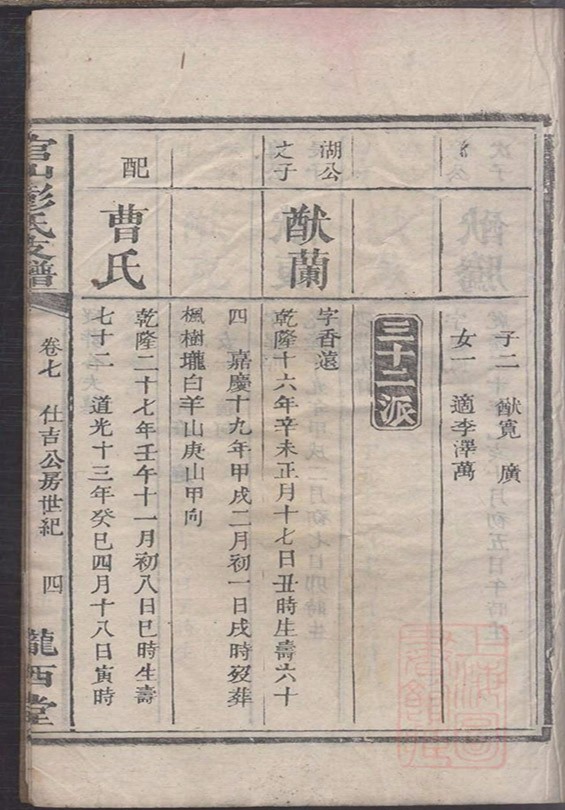 子二 猷寬 廣
女一 適李澤萬
三十二派
湖公之子
猷蘭
字香遠
乾隆十六年辛未正月十七日丑時生壽六十
四 嘉慶十九年甲戌二月初一日戌時歿葬
楓樹壠白羊山庚山甲向
配
曹氏
乾隆二十七年壬午十一月初八日巳時生壽
七十二 道光十三年癸巳四月十八日寅時
官山彭氏支譜
卷七 仕吉公房世紀 四
隴西堂
上海圖書館藏